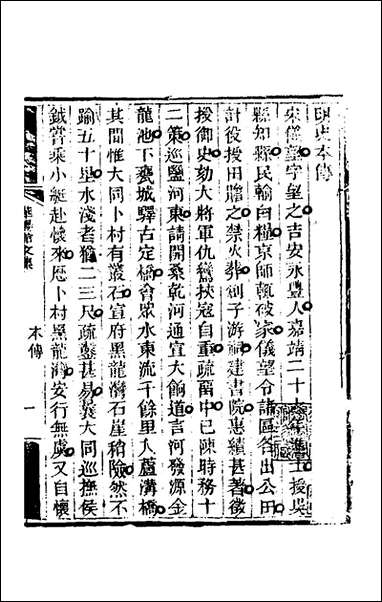 明史本傳
宋儀望字望之吉安永豐人嘉靖二十六年進士授吳
縣知縣民輸白糧京師輒破家儀望令諸區各出公田
計役授田贍之禁火葬創子游祠建書院惠績甚著徵
授御史劾大將軍仇鸞挾寇自重疏留中已陳時務十
二策巡鹽河東請開桑乾河通宣大餉道言河發源金
龍池下甕城驛古定橋會衆水東流千餘里入蘆溝橋
其間惟大同卜村有叢石宣府黑龍灣石崖稍險然不
踰五十里水淺者猶二三尺疏鑿甚易曩大同巡撫侯
鉞嘗乘小艇赴懷來歷卜村黑龍灣安行無虞又自懷
華陽館文集
本傳
一